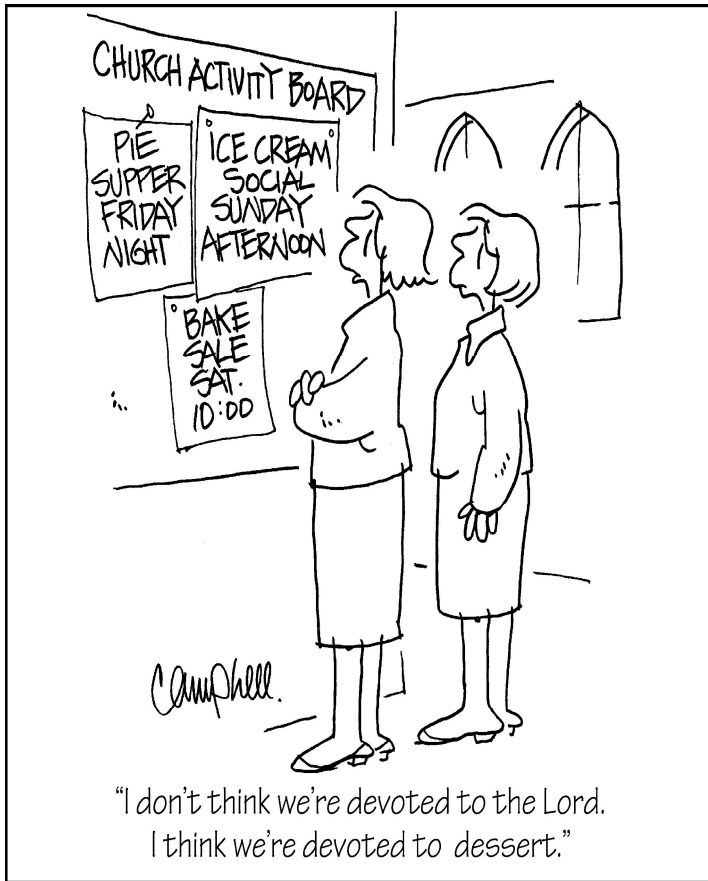 CHURCH ACTIVITY BOARD
PIE
SUPPER
FRIDAY
NIGHT
ICE CREAM
SOCIAL
SUNDAY
AFTERNOON
BAKE
SALE
SAT.
10:00
Campbell.
"I don't think we're devoted to the Lord.
I think we're devoted to dessert."